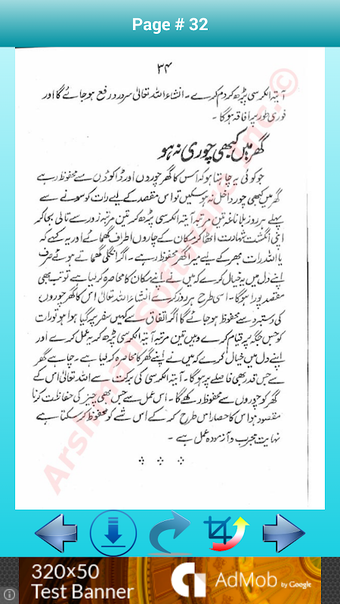 Page # 32
۳۴
آیۃ الکرسی پڑھ کر دم کرے۔ انشاء اللہ تعالیٰ سر درد رفع ہو جائے گا اور
فوری طور پر افاقہ ہوگا۔
گھر میں کبھی چوری نہ ہو
جو کوئی یہ چاہتا ہو کہ اس کا گھر چوروں اور ڈاکوؤں سے محفوظ رہے
گھر میں کبھی چور داخل نہ ہو سکیں تو اس مقصد کے لیے رات کو سونے سے
پہلے ہر روز بلا ناغہ تین مرتبہ آیۃ الکرسی پڑھ کر تین مرتبہ زور سے تالی بجا کر
اپنی انگشت شہادت اٹھا کر مکان کے چاروں اطراف گھمائے اور یہ کہے کہ
یا اللہ رات بھر کے لیے میرا گھر محفوظ رہے۔ اگر انگلی گھماتے ہوئے صرف
اپنے دل میں یہ خیال کرے کہ میں نے اپنے مکان کا محاصرہ کر لیا ہے تو تب بھی
مقصد پورا ہوگا۔ اسی طرح ہر روز کرے انشاء اللہ تعالیٰ اس کا گھر چوروں
کی دستبرد سے محفوظ ہو جائے گا اگر اتفاق سے کہیں سفر پر گیا ہوا ہو تو رات
کو جس جگہ پر قیام کرے وہیں تین مرتبہ آیۃ الکرسی پڑھ کر یہ عمل کرے اور
اپنے دل میں خیال کرے کہ میں نے اپنے گھر کا محاصرہ کر لیا ہے۔ چاہے گھر
سے جس قدر بھی فاصلے پر ہوگا۔ آیۃ الکرسی کی برکت سے اللہ تعالیٰ اس کے
گھر کو چوروں سے محفوظ رکھے گا۔ اس عمل سے جس بھی چیز کی حفاظت کرنا
مقصود ہو اس کا حصار اس طرح کر کے اس شے کو محفوظ کر سکتا ہے
نہایت مجرب و آزمودہ عمل ہے۔
320x50
Test Banner
AdMob by Google